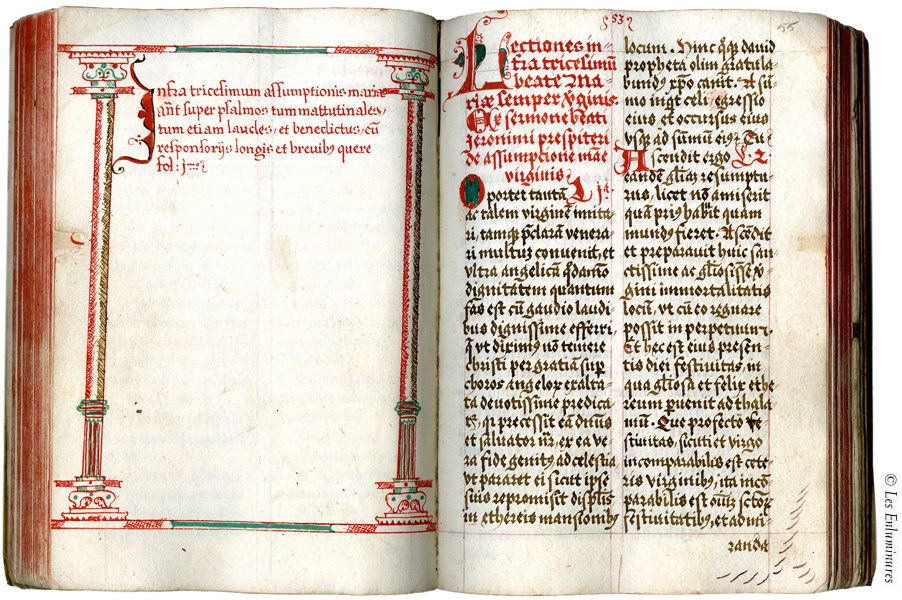 Infra tricesimum assumptionis marie
añt super psalmos tum mattutinales,
tum etiam laudes, et benedictus, cū
responsorijs longis et brevibꝰ quere
fol:
53
55
Lectiones in-
fra tricesimū
beate Ma-
riæ semper v̄ginis.
Ex sermone beati
zeronimi prespiteri
de assumpcione mãe
virginis
Oportet tantā L ja.
ac talem virginē imita-
ri, tamqꝫ p̄claram venera-
ri multuꝫ convenit, et
vltra angelicā q̄damō
dignitatem quantum
fas est cū gaudio laudi
bus dignissime efferri,
q vt diximꝰ nō temere
christi per gratiā sup
choros angeloꝝ exalta-
ta devotissime predica-
tꝫ, qꝫ precessit eā dn̄us
et salvator nr̄, ex ea ve-
ra fide genitꝰ ad celestia
vt pararet ei sicut ipse
suis repromisit displis
in ethereis mansionibꝰ
locum. Hinc qꝫ david
propheta olim gratula-
bundꝰ xp̄o canit. A sū-
mo inqt celi egressio
eius et occursus eius
vsqꝫ ad sūmum eiꝰ. Tu
Ascendit ergo L 2.
eandē gliam resumptu-
rus, licet nō amiserit
quā priꝰ habuit quam
mundꝰ fieret. Ascēdit
et preparavit huic san-
ctissime ac glosissē v̄-
gini immortalitatis
locū, vt cū eo regnare
possit in perpetuum.
Et hec est eius presen-
tis diei festivitas, in
qua gliosa et felix ethe
reum pvenit ad thala-
mū. Que profecto fe-
stivitas, sicuti et virgo
incomparabilis est cete-
ris virginibꝰ, ita incō
parabilis est oīuꝫ sctoꝝ
festivitatibꝰ, et admi-
randa
© Les Enluminures